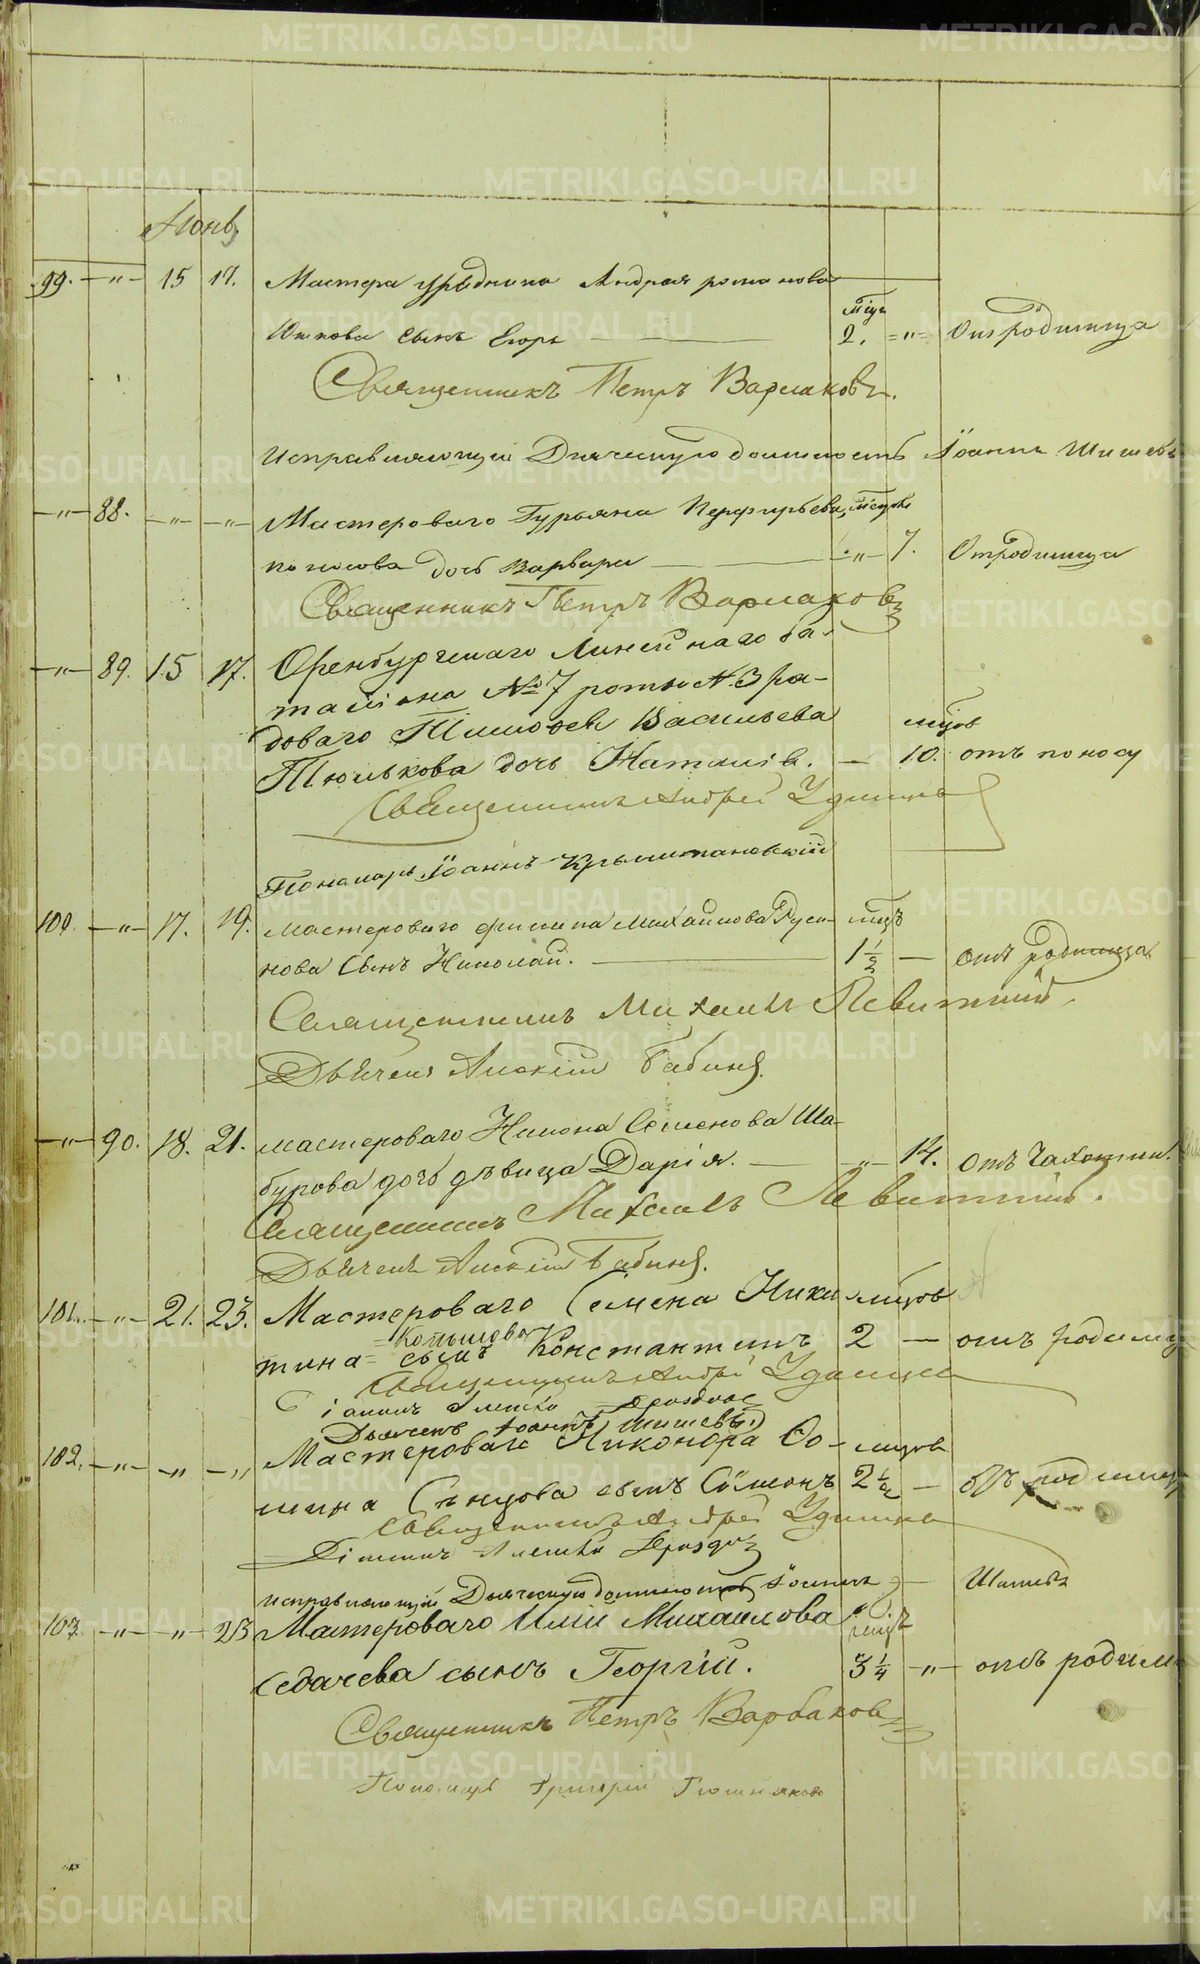 METRIKI.GASO-URAL.RU
Іюнь
99. —„— 15 17. Мастера урядника Андрея романова
сынъ Егоръ — мцъ 2. =„= Отъ родимца
Священникъ Петръ Варлаковъ.
Исправляющій Дьяческую должность Іоаннъ Шишевъ
—„— 88. —„— —„— Мастероваго Гурьяна Перфирьева мцовъ
дочь Варвара — „— 7. Отъ родимца
Священникъ Петръ Варлаковъ
—„— 89. 15 17. Оренбургскаго Линейнаго ба-
таліона №7 роты №3 ря-
доваго Тимофея Васильева мцовъ
Тюлькова дочь Наталія. — 10. отъ поносу
Священникъ Андрей Удинцевъ
Пономарь Іоаннъ
100. —„— 17. 19. Мастероваго Филипа Михайлова Руса- мцъ
нова Сынъ Николай. — 1½ — отъ родимца
Священникъ Михаилъ Левитскій.
Дьячекъ Алексій Бабинъ.
—„— 90. 18. 21. мастероваго Никона Семенова Ша-
бурова дочь дѣвица Дарія. — —„— 14. отъ Чахотки.
Священникъ Михаилъ Левитскій.
Дьячекъ Алексій Бабинъ.
101. —„— 21. 23. Мастероваго Семена Ники- мцовъ
тина = Копылова сынъ Константинъ 2 — отъ родимца
Священникъ Андрей Удинцевъ
Діаконъ Алексій Дроздовъ
Дьячекъ Іоаннъ Шишевъ
102. —„— —„— —„ Мастероваго Никонора Фо- мцовъ
мина Сѣнцова сынъ Сѵмеонъ 2½ — отъ родимца
Священникъ Андрей Удинцевъ
Діаконъ Алексій Дроздовъ
исправляющій Дьяческую должность Іоаннъ — Шишевъ
103. —„— —„— 23 Мастероваго Иліи Михайлова мцъ
Седачева сынъ Георгій. 3¼ —„— отъ родим
Священникъ Петръ Варлаковъ
Пономарь Григорій